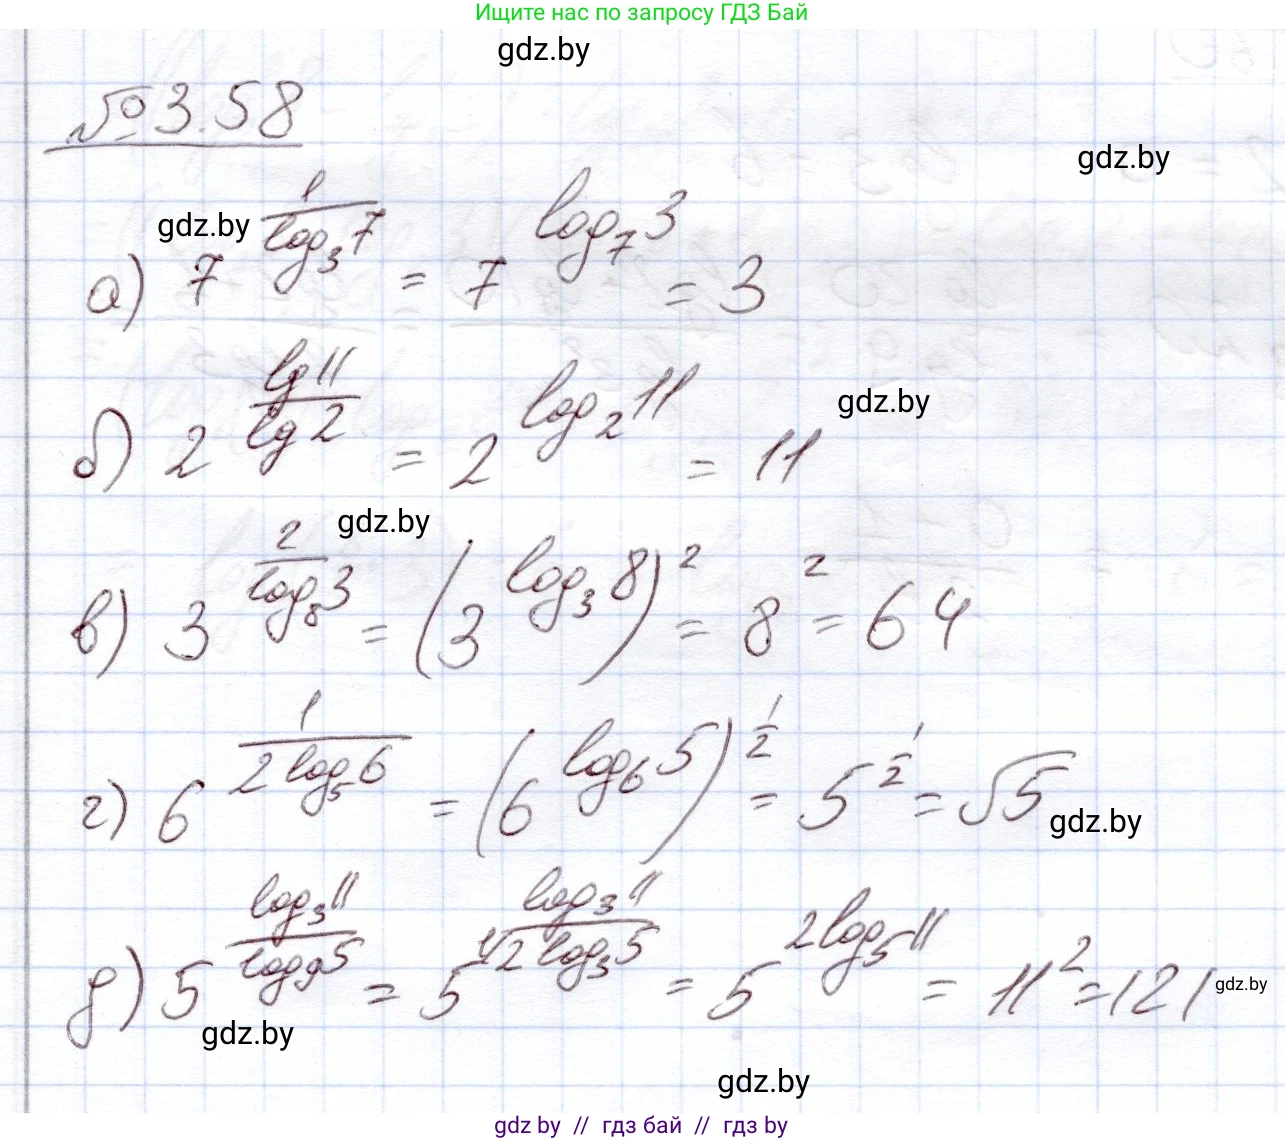 Ищите нас по запросу ГДЗ Бай
gdz.by
№ 3.58
gdz.by
gdz.by
а) 7^(1/log₃7) = 7^(log₇3) = 3
gdz.by
б) 2^(lg11/lg2) = 2^(log₂11) = 11
gdz.by
в) 3^(2/log₈3) = (3^(log₃8))² = 8² = 64
г) 6^(1/(2log₅6)) = (6^(log₆5))^(1/2) = 5^(1/2) = √5
gdz.by
д) 5^(log₃11/log₉5) = 5^(log₃11/(1/2 log₃5)) = 5^(2log₅11) = 11² = 121
gdz.by
gdz.by
gdz.by
gdz.by // гдз бай // гдз by